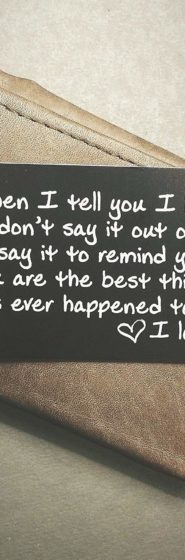 en I tell you I
don't say it out o
say it to remind y
are the best thi
s ever happened to
I lo